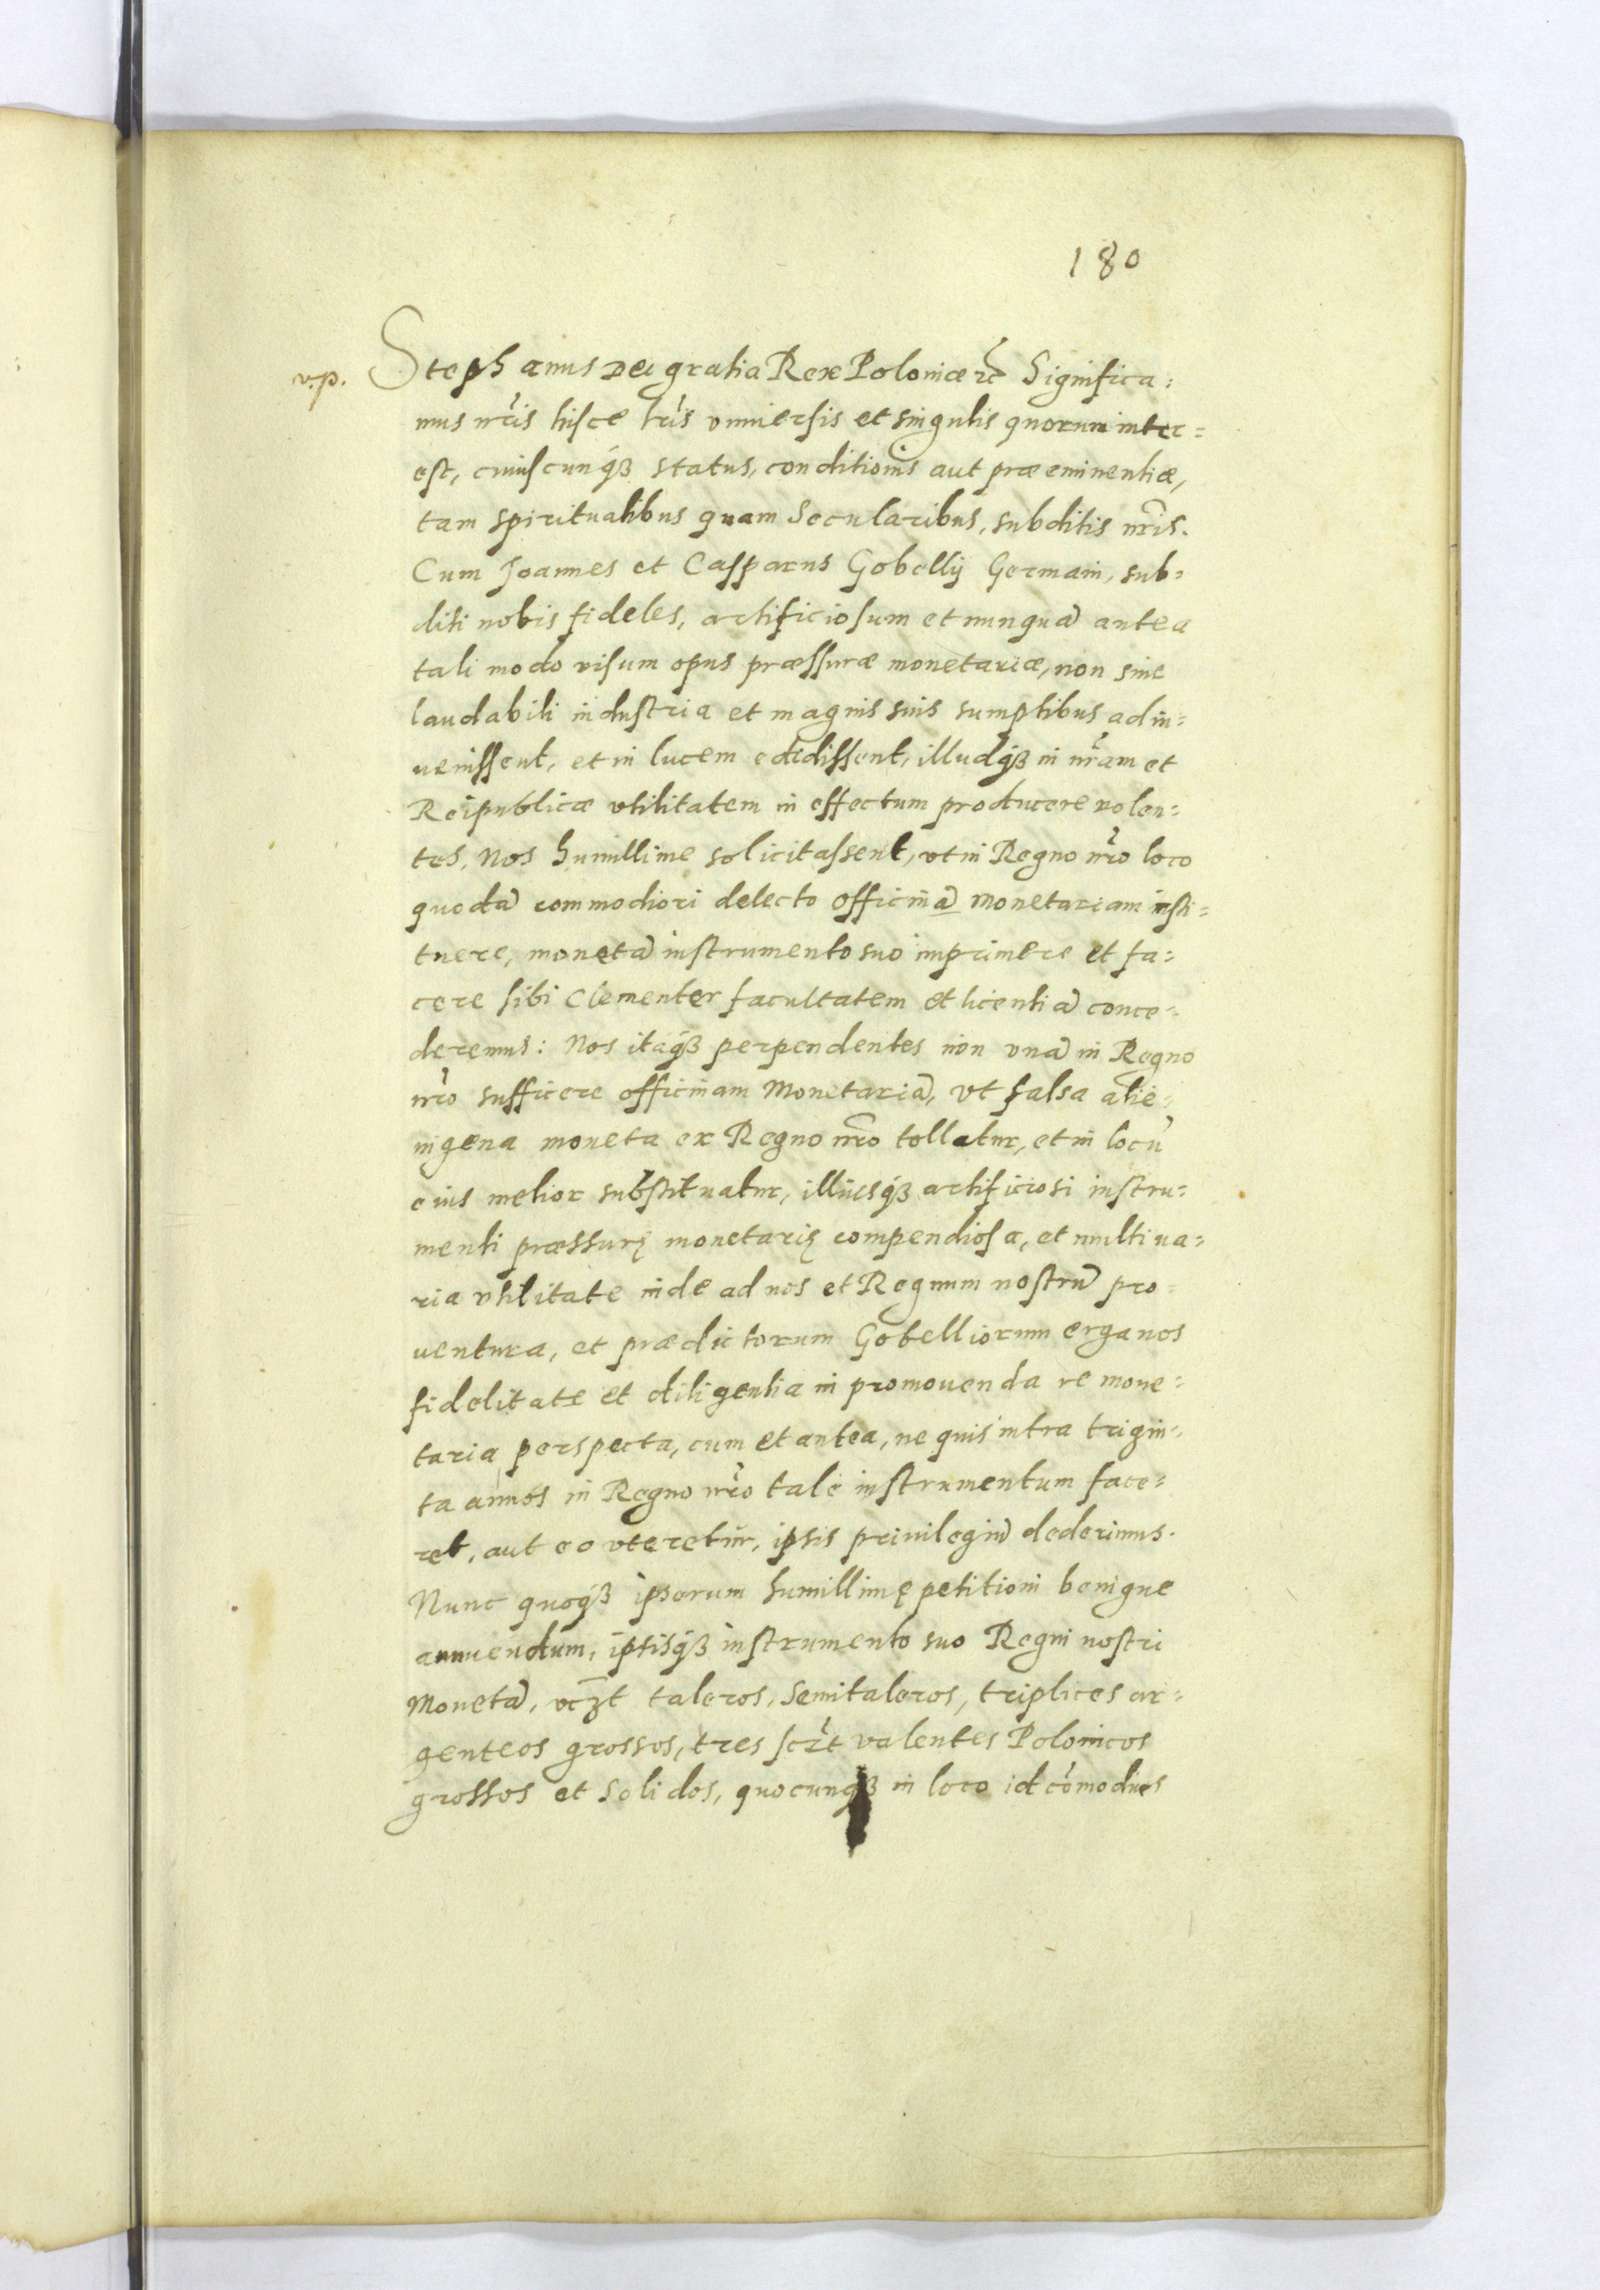 180
v.p. Stephanus Dei gratia Rex Poloniæ etc̄ Significa=
mus nr̄is hisce lr̄is vniuersis et singulis quorum inter=
est, cuiuscunq́ꝫ status, conditionis aut præeminentiæ,
tam spiritualibus quam Secularibus, subditis nr̄is.
Cum Joannes et Casparus Gobellij Germani, sub=
diti nobis fideles, artificiosum et nunquā antea
tali modo visum opus præssuræ monetariæ, non sine
laudabili industria et magnis suis sumptibus adin=
uenissent, et in lucem edidissent, illudq́ꝫ in nr̄am et
Reipublicæ vtilitatem in effectum producere volen=
tes, Nos humillime solicitassent, vt in Regno nr̄o loco
quodā commodiori delecto officinā Monetariam insti=
tuere, monetā instrumento suo imprimere et fa=
cere sibi Clementer facultatem et licentiā conce=
deremus: Nos itaq́ꝫ perpendentes non vnā in Regno
nr̄o sufficere officinam Monetariā, vt falsa alie=
nigena moneta ex Regno nr̄o tollatur, et in locū
eius melior substituatur, illiusq́ꝫ artificiosi instru=
menti præssurę monetarię compendiosa, et multiua=
ria vtilitate inde ad nos et Regnum nostrū pro=
uentura, et prædictorum Gobelliorum erga nos
fidelitate et diligentia in promouenda re mone=
taria perspecta, cum et antea, ne quis intra trigin=
ta annos in Regno nr̄o tale instrumentum face=
ret, aut eo vteretur, ipsis priuilegiū dederimus.
Nunc quoq́ꝫ ipsorum humillimę petitioni benigne
annuendum, ipsisq́ꝫ instrumento suo Regni nostri
Monetā, vcꝫt taleros, Semitaleros, triplices ar=
genteos grossos, tres scꝫt valentes Polonicos
grossos et Solidos, quocunq́ꝫ in loco id cōmodius